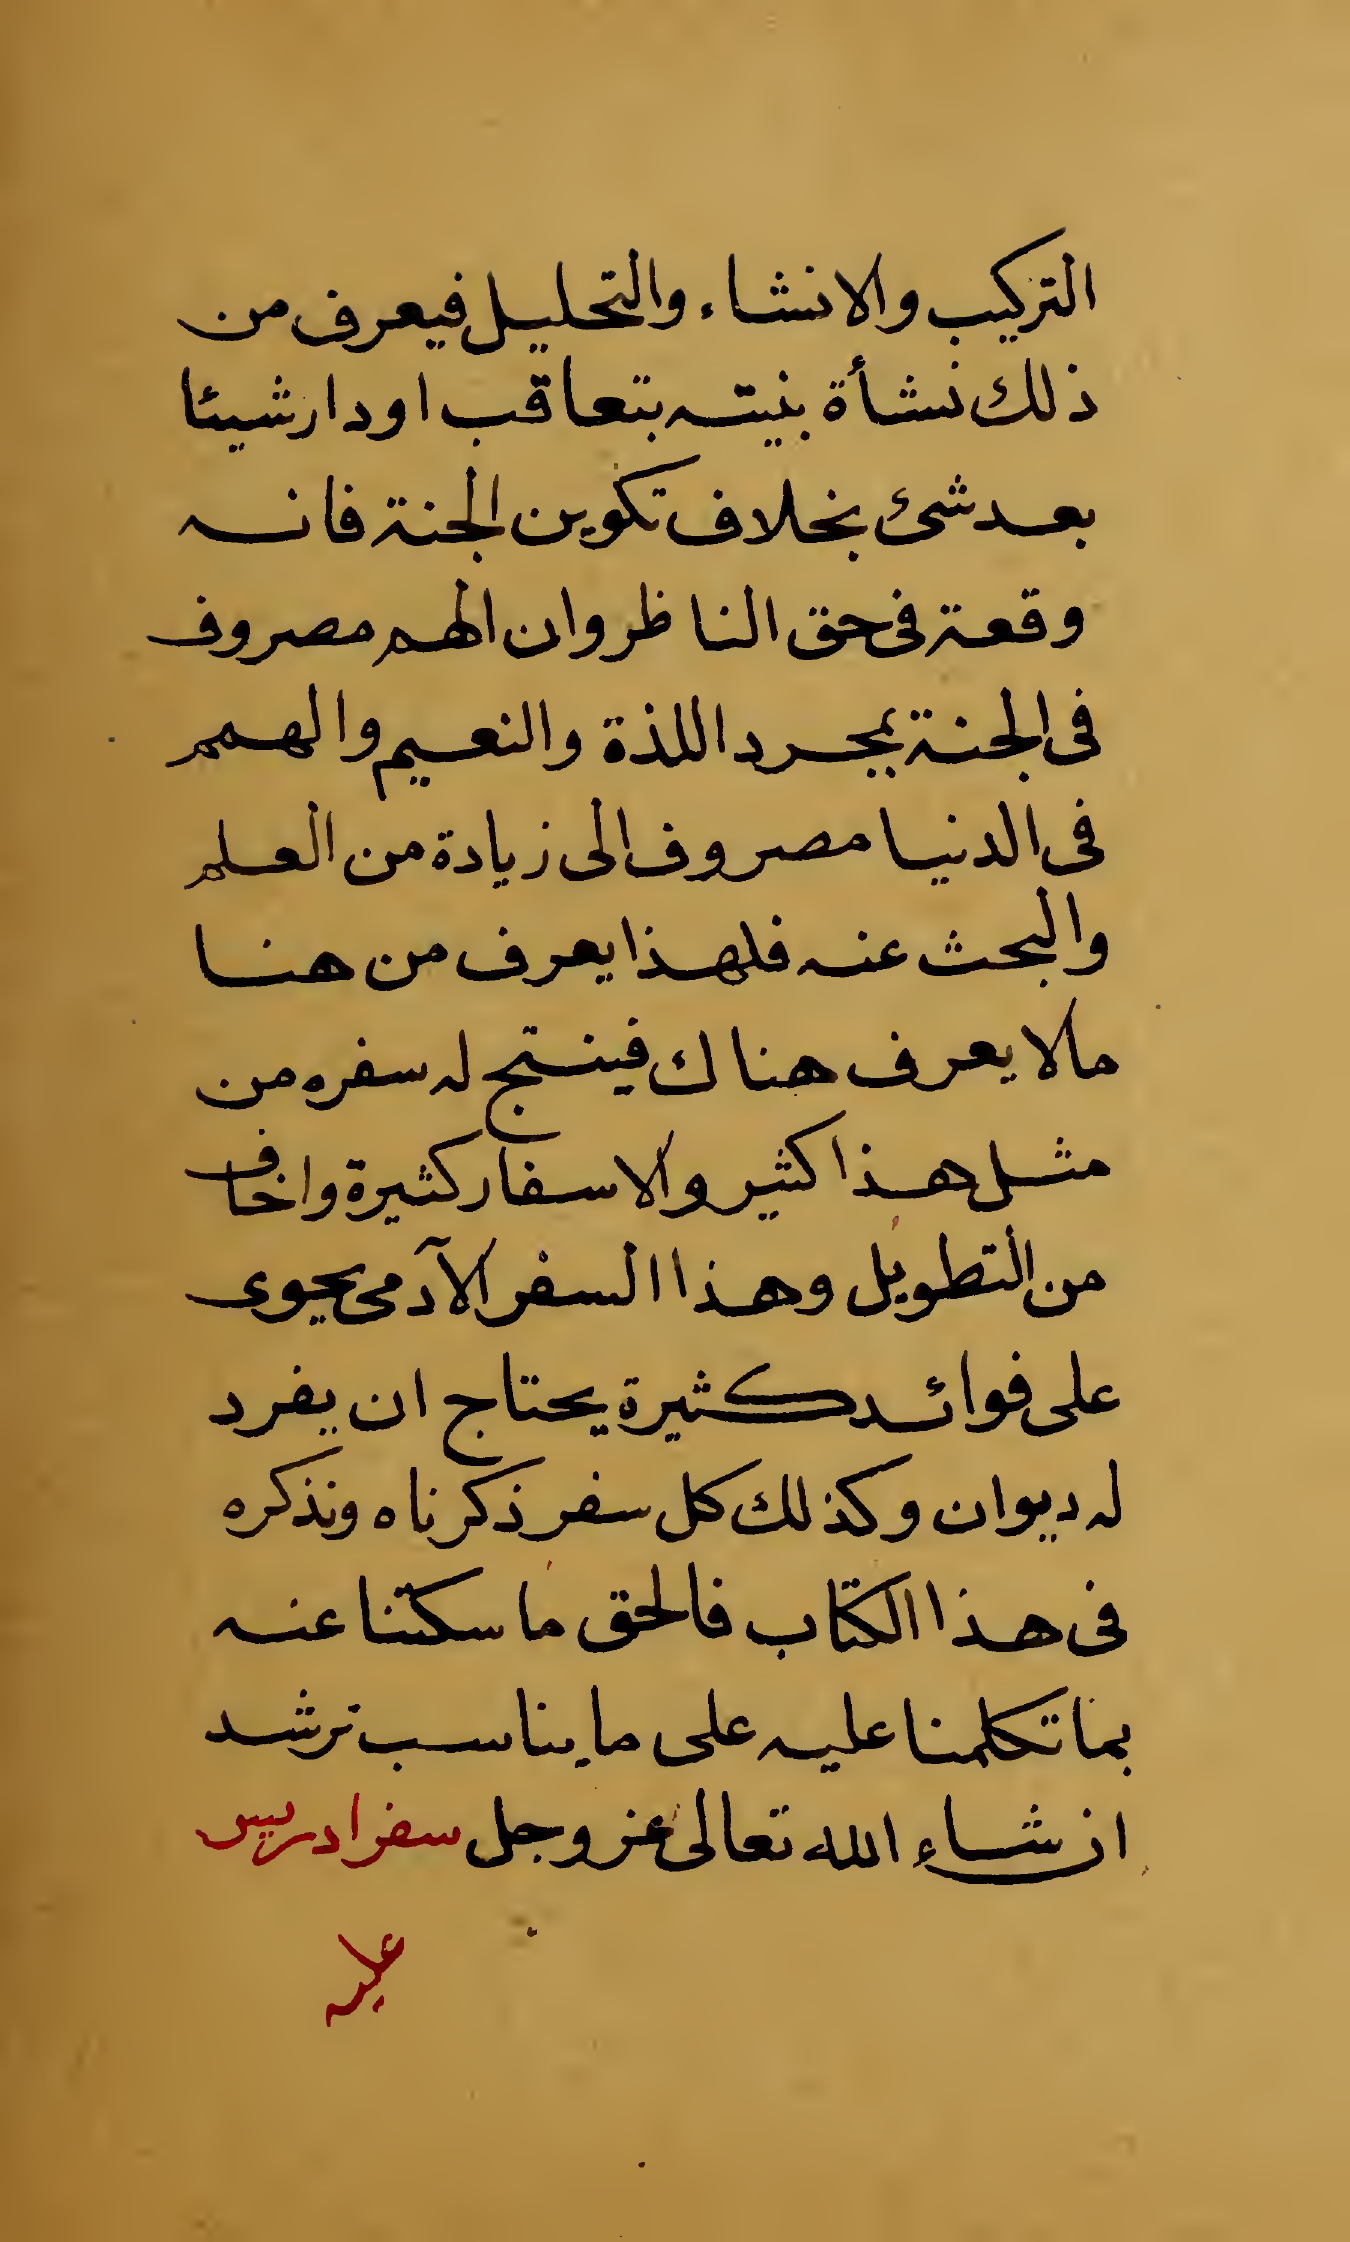 التركيب والانشاء والتحليل فيعرف من
ذلك نشأة بنيته بتعاقب اودار شيئا
بعد شئ بخلاف تكوين الجنة فانه
وقعة فى حق الناظر وان الهم مصروف
فى الجنة بمجرد اللذة والنعيم والهمم
فى الدنيا مصروف الى زيادة من العلم
والبحث عنه فلهذا يعرف من هنا
مالا يعرف هناك فينتج له سفره من
مثل هذا كثير والاسفار كثيرة واخاف
من التطويل وهذا السفر الآدمى يحوى
على فوائد كثيرة يحتاج ان يفرد
له ديوان وكذلك كل سفر ذكرناه ونذكره
فى هذا الكتاب فالحق ما سكتنا عنه
بما تكلمنا عليه على ما يناسب ترشد
ان شاء الله تعالى عز وجل سفر ادريس
عليه